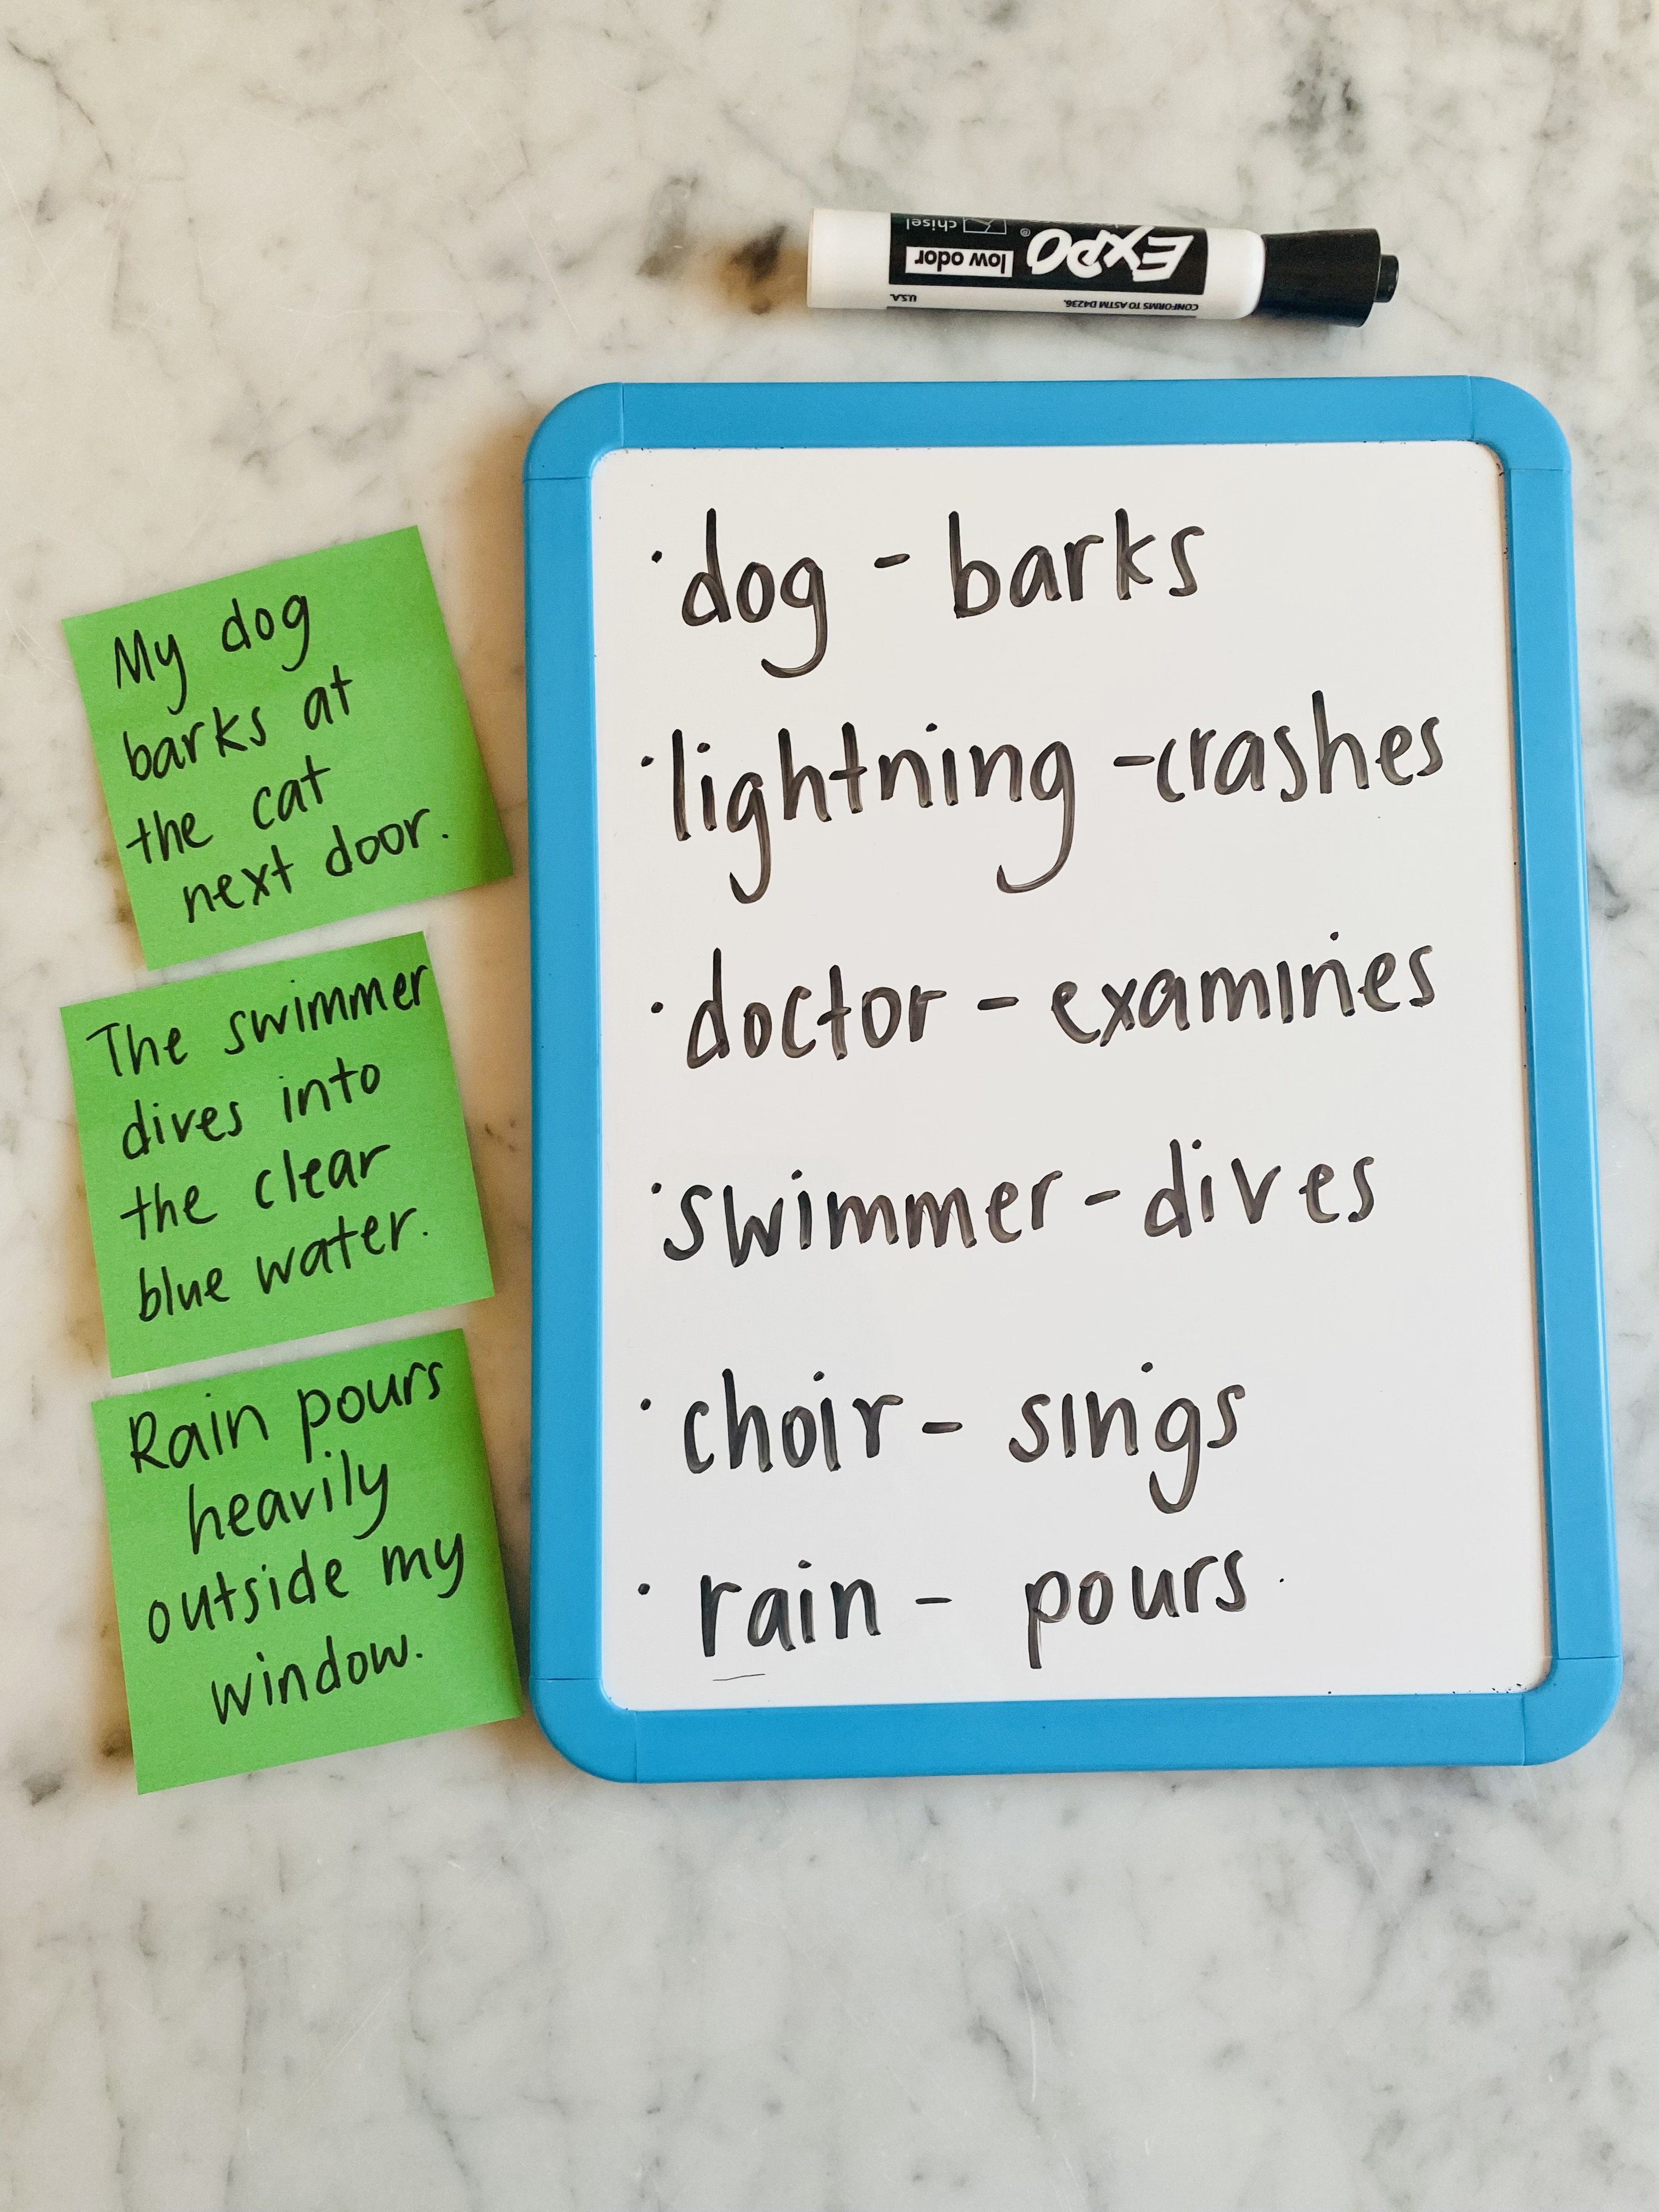 chisel
EXPO®
low odor
CONFORMS TO ASTM D4236.
U.S.A.
My dog
barks at
the cat
next door.
The swimmer
dives into
the clear
blue water.
Rain pours
heavily
outside my
window.
· dog - barks
· lightning - crashes
· doctor - examines
· swimmer - dives
· choir - sings
· rain - pours